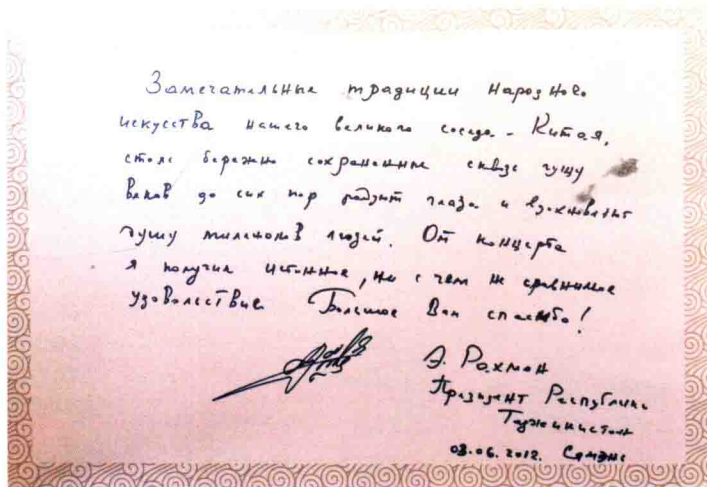 Замечательные традиции народного
искусства нашего великого соседа - Китая,
столь бережно сохраненные сквозь гущу
веков до сих пор радуют глаза и вдохновляют
душу миллионов людей. От концерта
я получил истинное, ни с чем не сравнимое
удовольствие Большое Вам спасибо!
Э. Рахмон
Президент Республики
Таджикистан
03.06.2012. Сямэнь